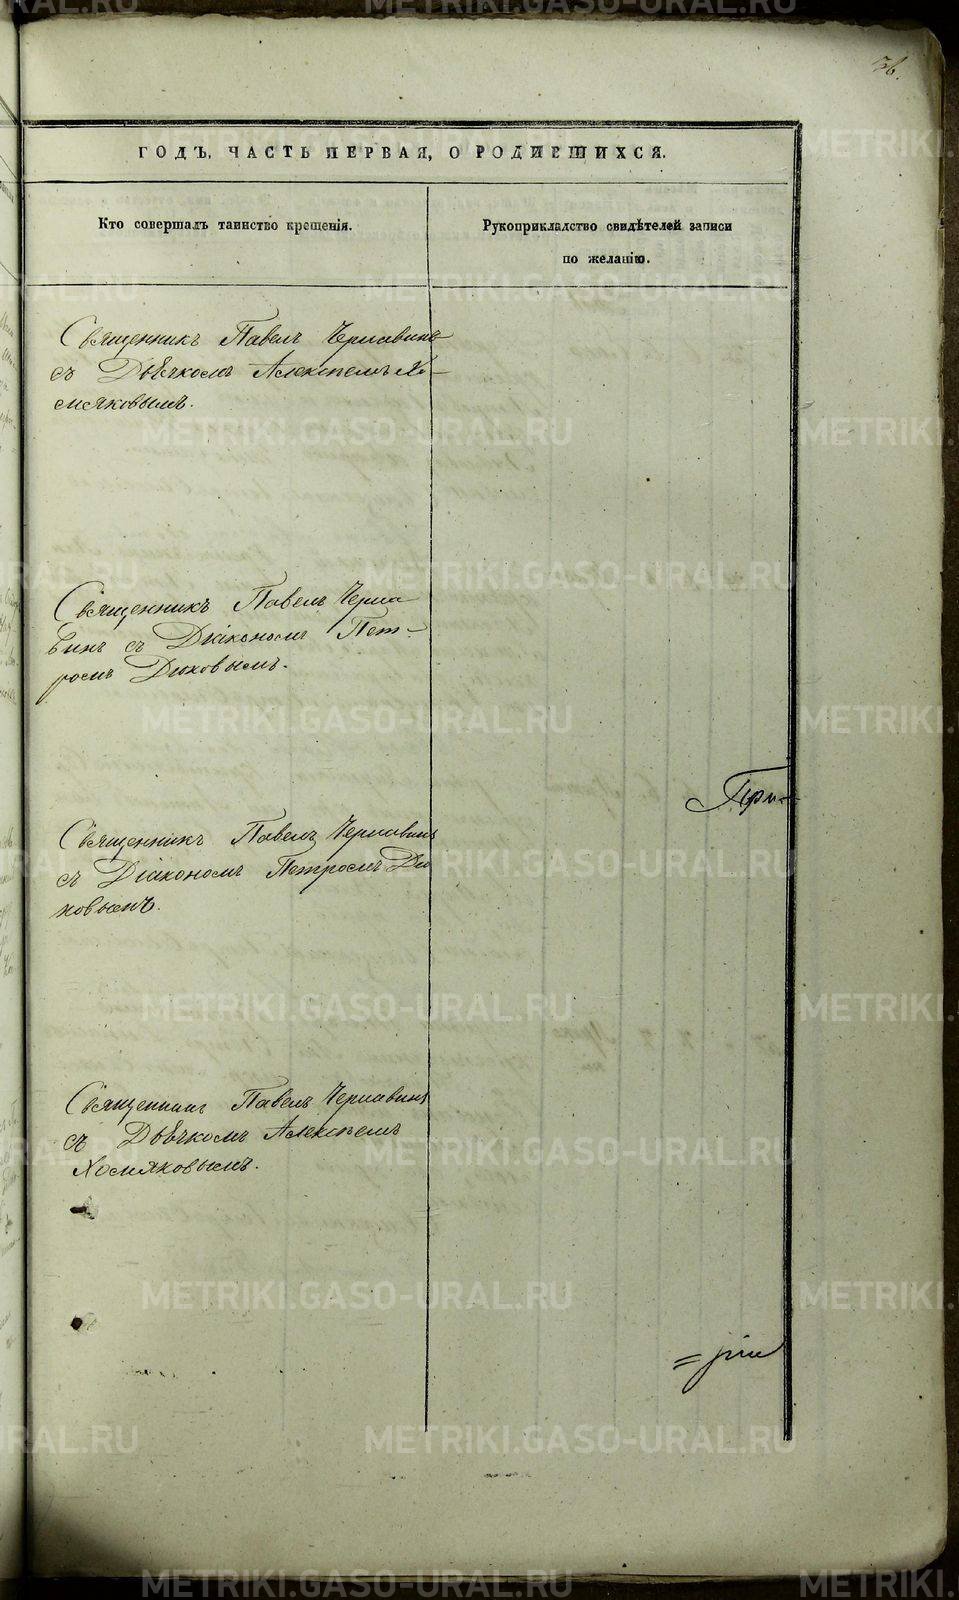 36.
ГОДЪ, ЧАСТЬ ПЕРВАЯ, О РОДИВШИХСЯ.
Кто совершалъ таинство крещенія.
Рукоприкладство свидѣтелей записи
по желанію.
Священникъ Павелъ Чернавинъ
съ Дьячкомъ Алексѣемъ Хо-
мяковымъ.
Священникъ Павелъ Черна
винъ съ Діакономъ Пет-
ромъ Диковымъ.
При-
Священникъ Павелъ Чернавинъ
съ Діакономъ Петромъ Ди
ковымъ.
Священникъ Павелъ Чернавинъ
съ Дьячкомъ Алексѣемъ
Хомяковымъ.
METRIKI.GASO-URAL.RU